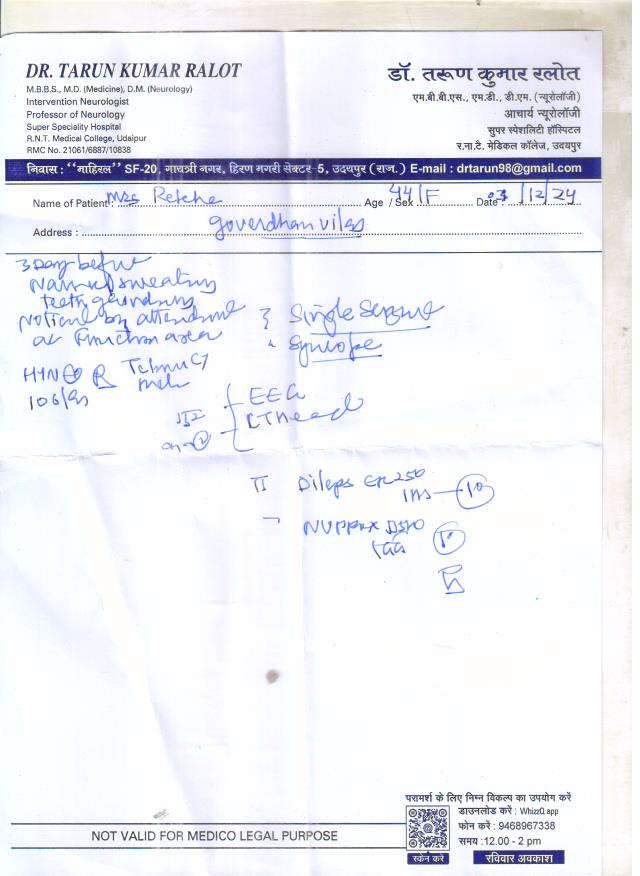 DR. TARUN KUMAR RALOT
M.B.B.S., M.D. (Medicine), D.M. (Neurology)
Intervention Neurologist
Professor of Neurology
Super Speciality Hospital
R.N.T. Medical College, Udaipur
RMC No. 21061/6887/10838
डॉ. तरूण कुमार रलोत
एम.बी.बी.एस., एम.डी., डी.एम. (न्यूरोलॉजी)
आचार्य न्यूरोलॉजी
सुपर स्पेशलिटी हॉस्पिटल
र.ना.टै. मेडिकल कॉलेज, उदयपुर
निवास : "माहिरल" SF-20, गायत्री नगर, हिरण मगरी सेक्टर-5, उदयपुर (राज.) E-mail : drtarun98@gmail.com
Name of Patient : Age / Sex 44/F Date : /12/24
Address : Goverdhan vilas
3 Day before
sweating
Teeth
by attendant
at Function area
Single Seizure
Syncope
HTN
EEG
CT Head
250
परामर्श के लिए निम्न विकल्प का उपयोग करें
डाउनलोड करें : WhizzQ app
फोन करें : 9468967338
समय :12.00 - 2 pm
स्कैन करें
रविवार अवकाश
NOT VALID FOR MEDICO LEGAL PURPOSE